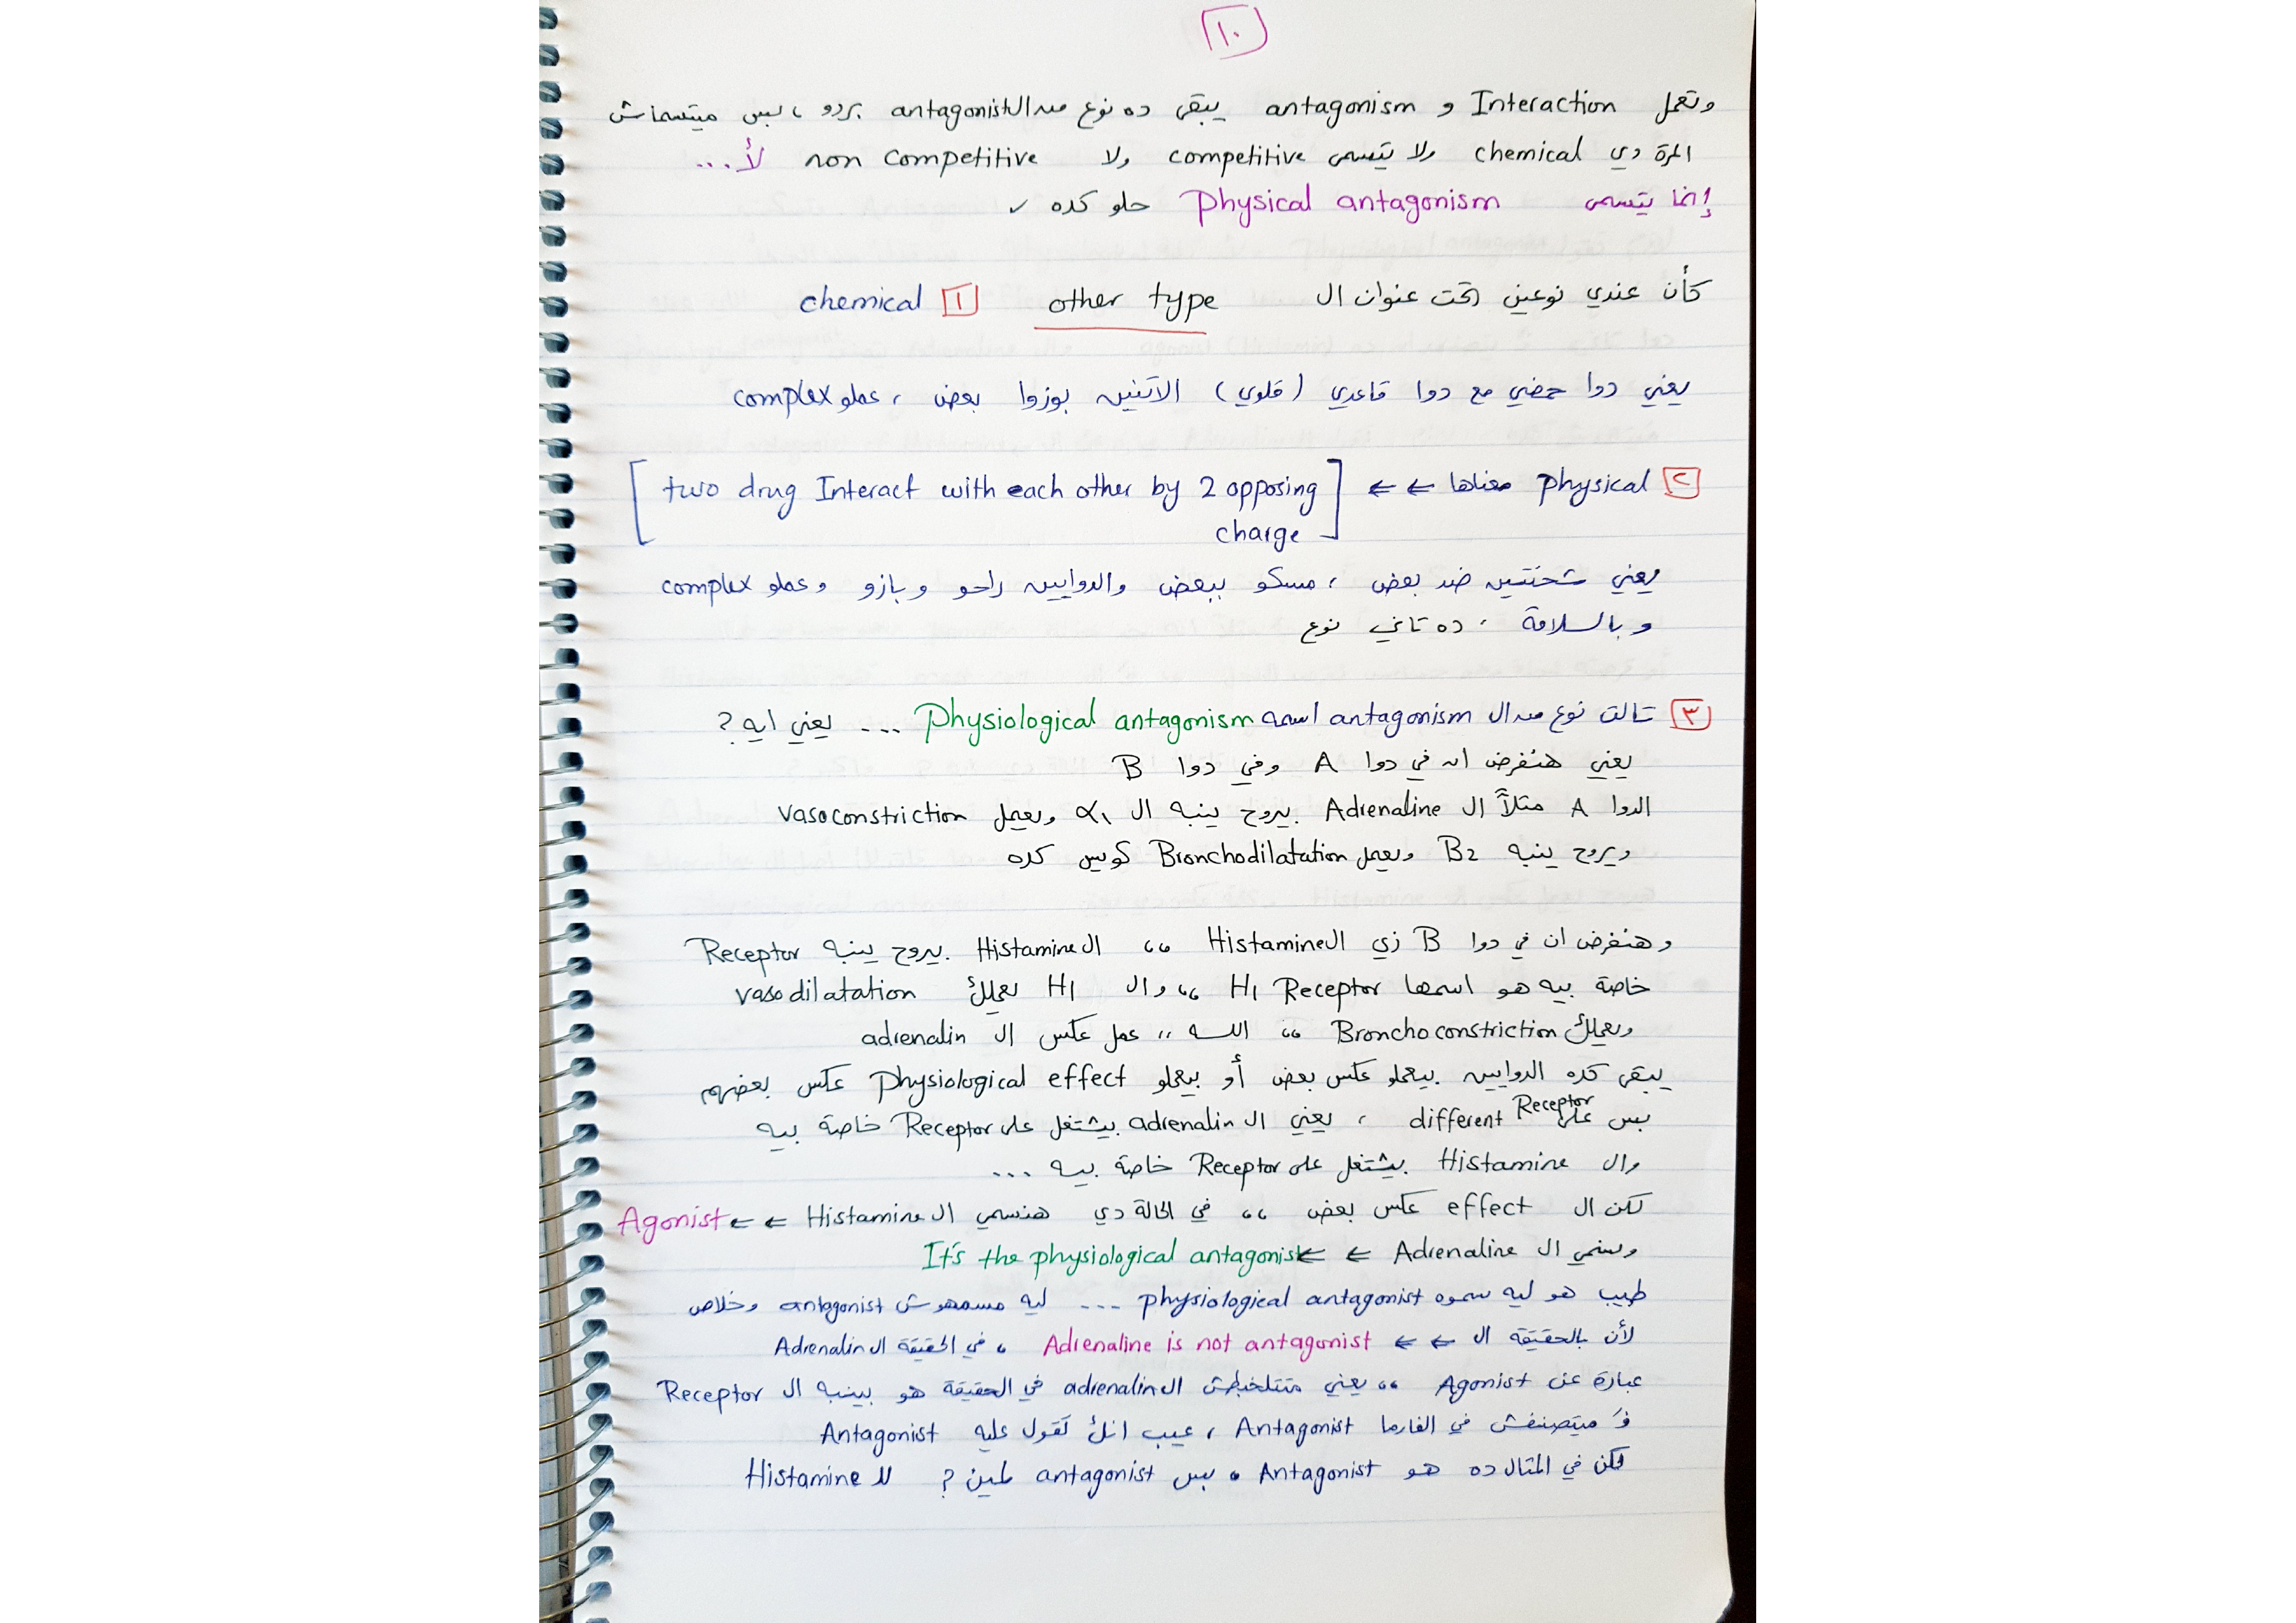 ١٠
وتعمل Interaction و antagonism يبقى ده نوع من الـ antagonist بردو ، بس ميتسماش
المرة دي chemical ولا يتسمى competitive ولا non competitive لأ...
إنما يتسمى Physical antagonism حلو كده ✓
كأن عندي نوعين تحت عنوان ال other type ١ chemical
يعني دوا حمضي مع دوا قاعدي (قلوي) الاتنين بوزوا بعض ، عملو complex
٢ physical معناها ← ← [two drug Interact with each other by 2 opposing
charge]
يعني شحنتين ضد بعض ، مسكو ببعض والدوايين راحو وبازو وعملو complex
وبالسلامة ، ده تاني نوع
٣ تالت نوع من ال antagonism اسمه Physiological antagonism ... يعني ايه ?
يعني هنفرض ان في دوا A وفي دوا B
الدوا A مثلاً ال Adrenaline بيروح ينبه ال α١ ويعمل vasoconstriction
ويروح ينبه B2 ويعمل Bronchodilatation كويس كده
وهنفرض ان في دوا B زي ال Histamine ،، ال Histamine بيروح ينبه Receptor
خاصة بيه هو اسمها H1 Receptor ،، وال H1 تعملك vasodilatation
ويعملك Bronchoconstriction ،، الله ،، عمل عكس ال adrenalin
يبقى كده الدوايين بيعملو عكس بعض أو بيعملو Physiological effect عكس بعضهم
بس على different Receptor ، يعني ال adrenalin بيشتغل على Receptor خاصة بيه
وال Histamine بيشتغل على Receptor خاصة بيه ...
لكن ال effect عكس بعض ،، في الحالة دي هنسمي ال Histamine ← ← Agonist
ونسمي ال Adrenaline ← ← It's the physiological antagonist
طيب هو ليه سموه physiological antagonist ... ليه مسمهوش antagonist وخلاص
لأن بالحقيقة ال ← ← Adrenaline is not antagonist ، في الحقيقة ال Adrenalin
عبارة عن Agonist ،، يعني متتلخبطش ال adrenalin في الحقيقة هو بينبه ال Receptor
فَ ميتصنفش في الفارما Antagonist ، عيب انك تقول عليه Antagonist
لكن في المثال ده هو Antagonist ، بس antagonist لمين ? لل Histamine